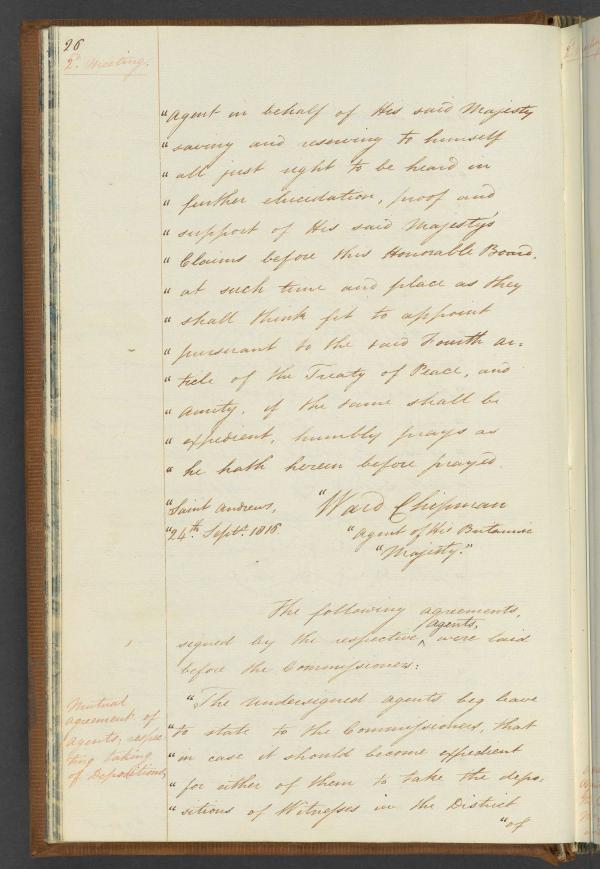 26
2d. Meeting.
"Agent in behalf of His said Majesty
"saving and reserving to himself
"all just right to be heard in
"further elucidation, proof and
"support of His said Majesty's
"Claims before this Honorable Board,
"at such time and place as they
"shall think fit to appoint
"pursuant to the said Fourth ar=
"ticle of the Treaty of Peace, and
"Amity, if the same shall be
"expedient, humbly prays as
"he hath herein before prayed.
"Saint Andrews, "Ward Chipman
"24th. Septr. 1816. "Agent of His Britannic
"Majesty."
The following agreements,
signed by the respective ^ Agents, were laid
before the Commissioners:
Mutual
agreement of
Agents, respec
ting taking
of Depositions,
"The undersigned agents beg leave
"to state to the Commissioners, that
"in case it should become expedient
"for either of them to take the depo-
"sitions of Witnesses in the District
"of